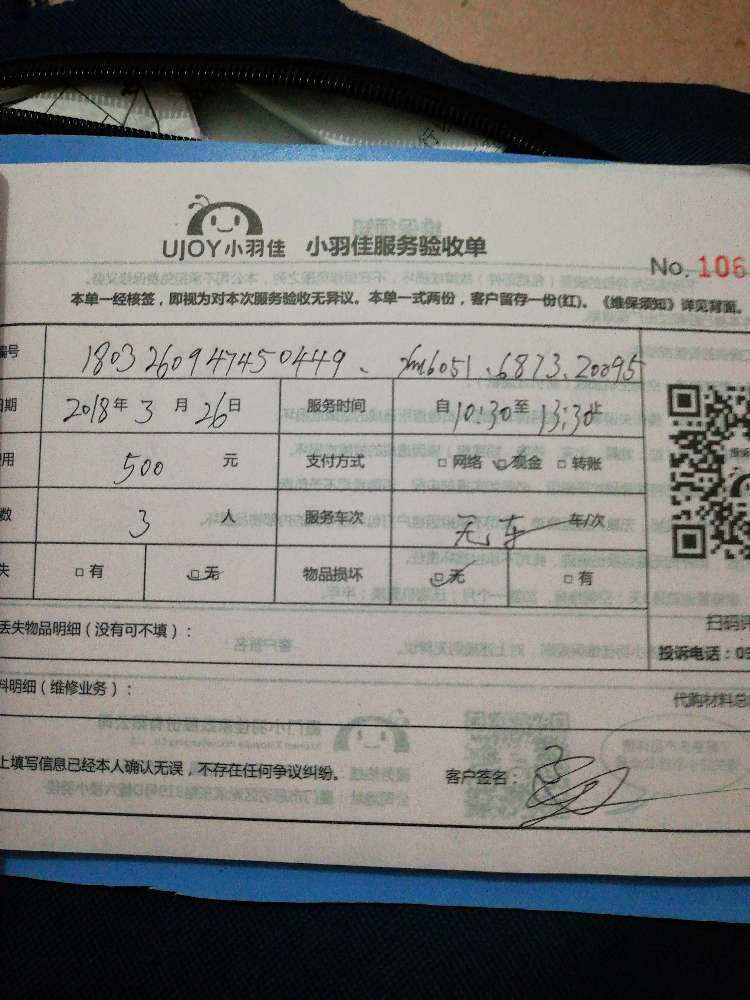 UJOY小羽佳 小羽佳服务验收单
No. 106
本单一经核签，即视为对本次服务验收无异议。本单一式两份，客户留存一份(红)。《维保须知》详见背面。
编号 1803260947450449、xm6051.6873.20095
日期 2018年3月26日 服务时间 自10:30至13:30止
用 500 元 支付方式 □网络 □现金 □转账
数 3 人 服务车次 无车 车/次
失 □有 □无 物品损坏 □无 □有
丢失物品明细（没有可不填）：
扫码评
投诉电话：05
料明细（维修业务）：
代购材料总
上填写信息已经本人确认无误，不存在任何争议纠纷。 客户签名：